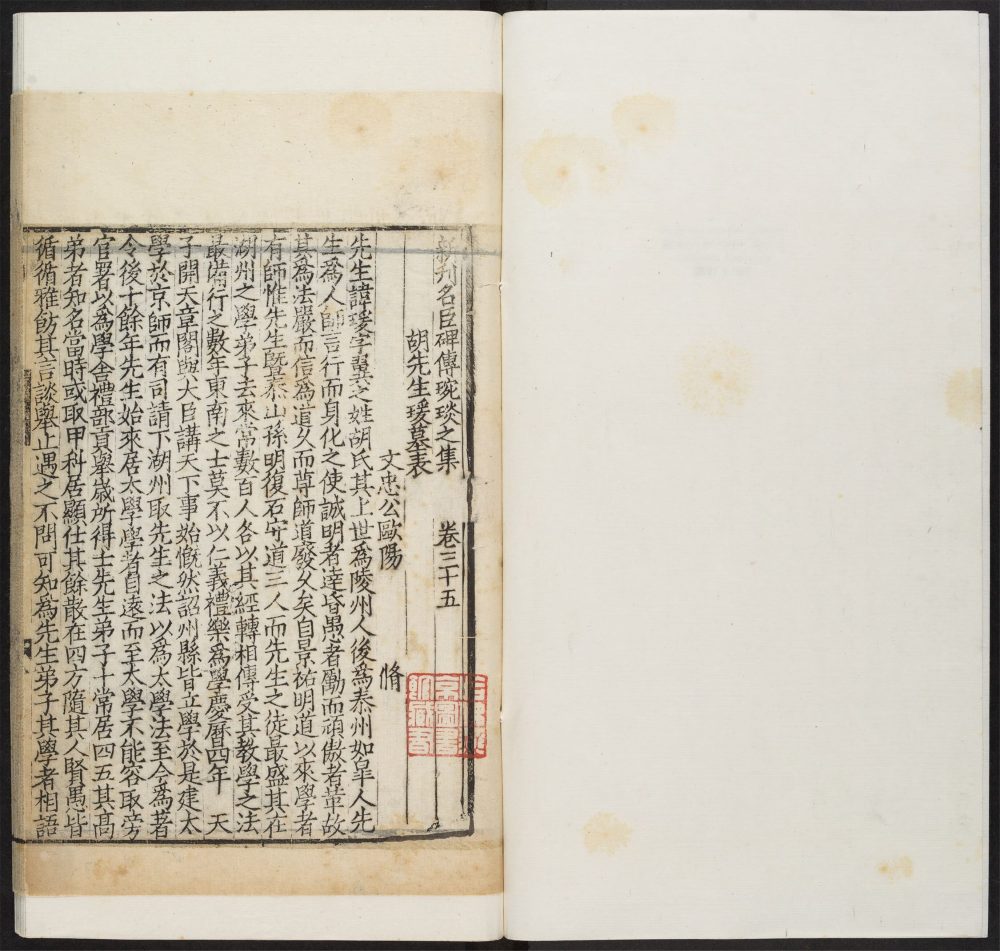 新刊名臣碑傳琬琰之集　卷三十五
胡先生瑗墓表
文忠公歐陽　脩
先生諱瑗字翼之姓胡氏其上世爲陵州人後爲泰州如皐人先
生爲人師言行而身化之使誠明者逹昏愚者勵而頑傲者革故
其爲法嚴而信爲道久而尊師道廢久矣自景祐明道以來學者
有師惟先生曁泰山孫明復石守道三人而先生之徒最盛其在
湖州之學弟子去來常數百人各以其經轉相傳受其教學之法
最備行之數年東南之士莫不以仁義禮樂爲學慶曆四年　天
子開天章閣與大臣講天下事始慨然詔州縣皆立學於是建太
學於京師而有司請下湖州取先生之法以爲太學法至今爲著
令後十餘年先生始來居太學學者自遠而至太學不能容取旁
官署以爲學舍禮部貢舉歲所得士先生弟子十常居四五其髙
弟者知名當時或取甲科居顯仕其餘散在四方隨其人賢愚皆
循循雅飭其言談舉止遇之不問可知爲先生弟子其學者相語